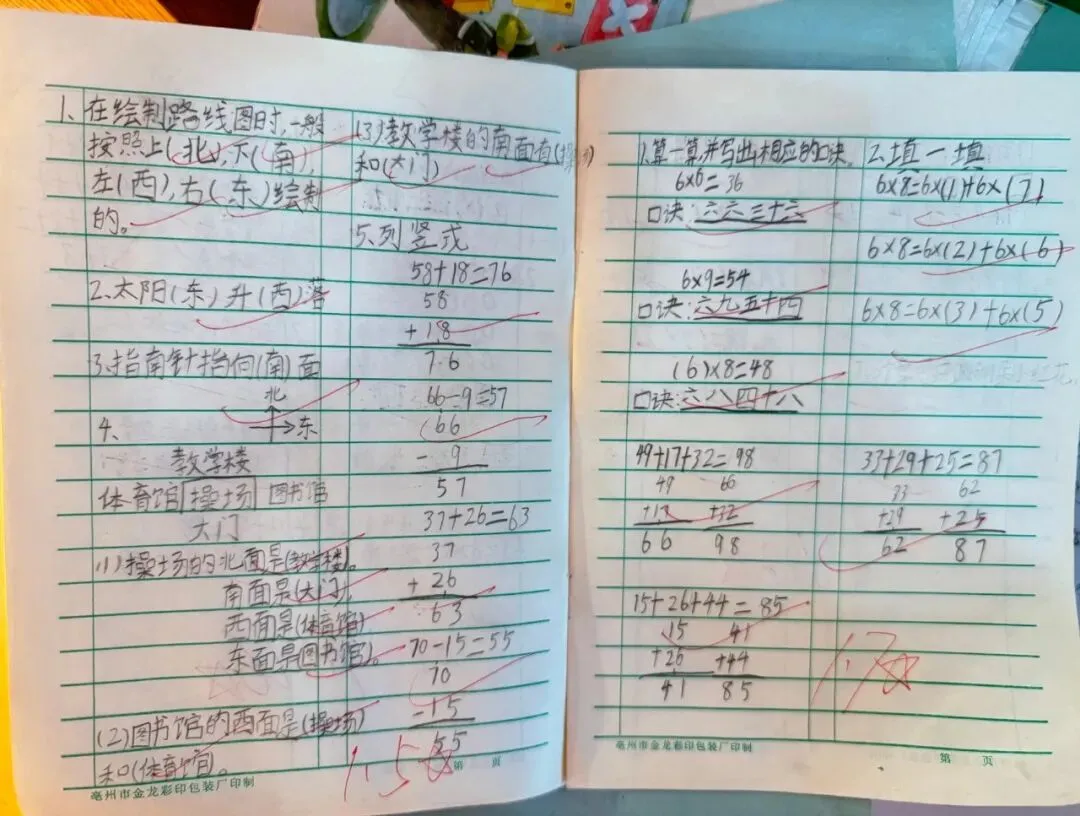 1、在绘制路线图时,一般
按照上(北),下(南),
左(西),右(东)绘制
的。
2、太阳(东)升(西)落
3、指南针指向(南)面
北
4、
东
教学楼
体育馆 操场 图书馆
大门
(1)操场的北面是(教学楼)。
南面是(大门),
西面是(体育馆)
东面是(图书馆)。
(2)图书馆的西面是(操场)
和(体育馆)。
亳州市金龙彩印包装厂印制
(3)教学楼的南面有(操场)
和(大门)
5、列竖式
58+18=76
58
+18
76
66-9=57
66
- 9
57
37+26=63
37
+26
63
70-15=55
70
-15
55
1.5
第 页
1.算一算,并写出相应的口诀。
6×6=36
口诀:六六三十六
6×9=54
口诀:六九五十四
(6)×8=48
口诀:六八四十八
49+17+32=98
49 66
+17 +32
66 98
15+26+44=85
15 41
+26 +44
41 85
亳州市金龙彩印包装厂印制
2.填一填
6×8=6×(1)+6×(7)
6×8=6×(2)+6×(6)
6×8=6×(3)+6×(5)
33+29+25=87
33 62
+29 +25
62 87
1.7
第 页